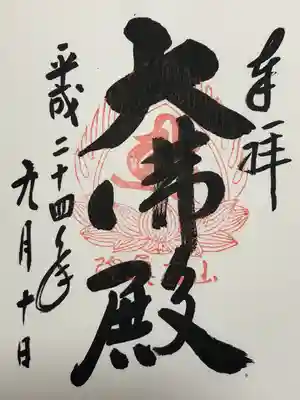 奉拝
大佛殿
平成二十四年
月十日